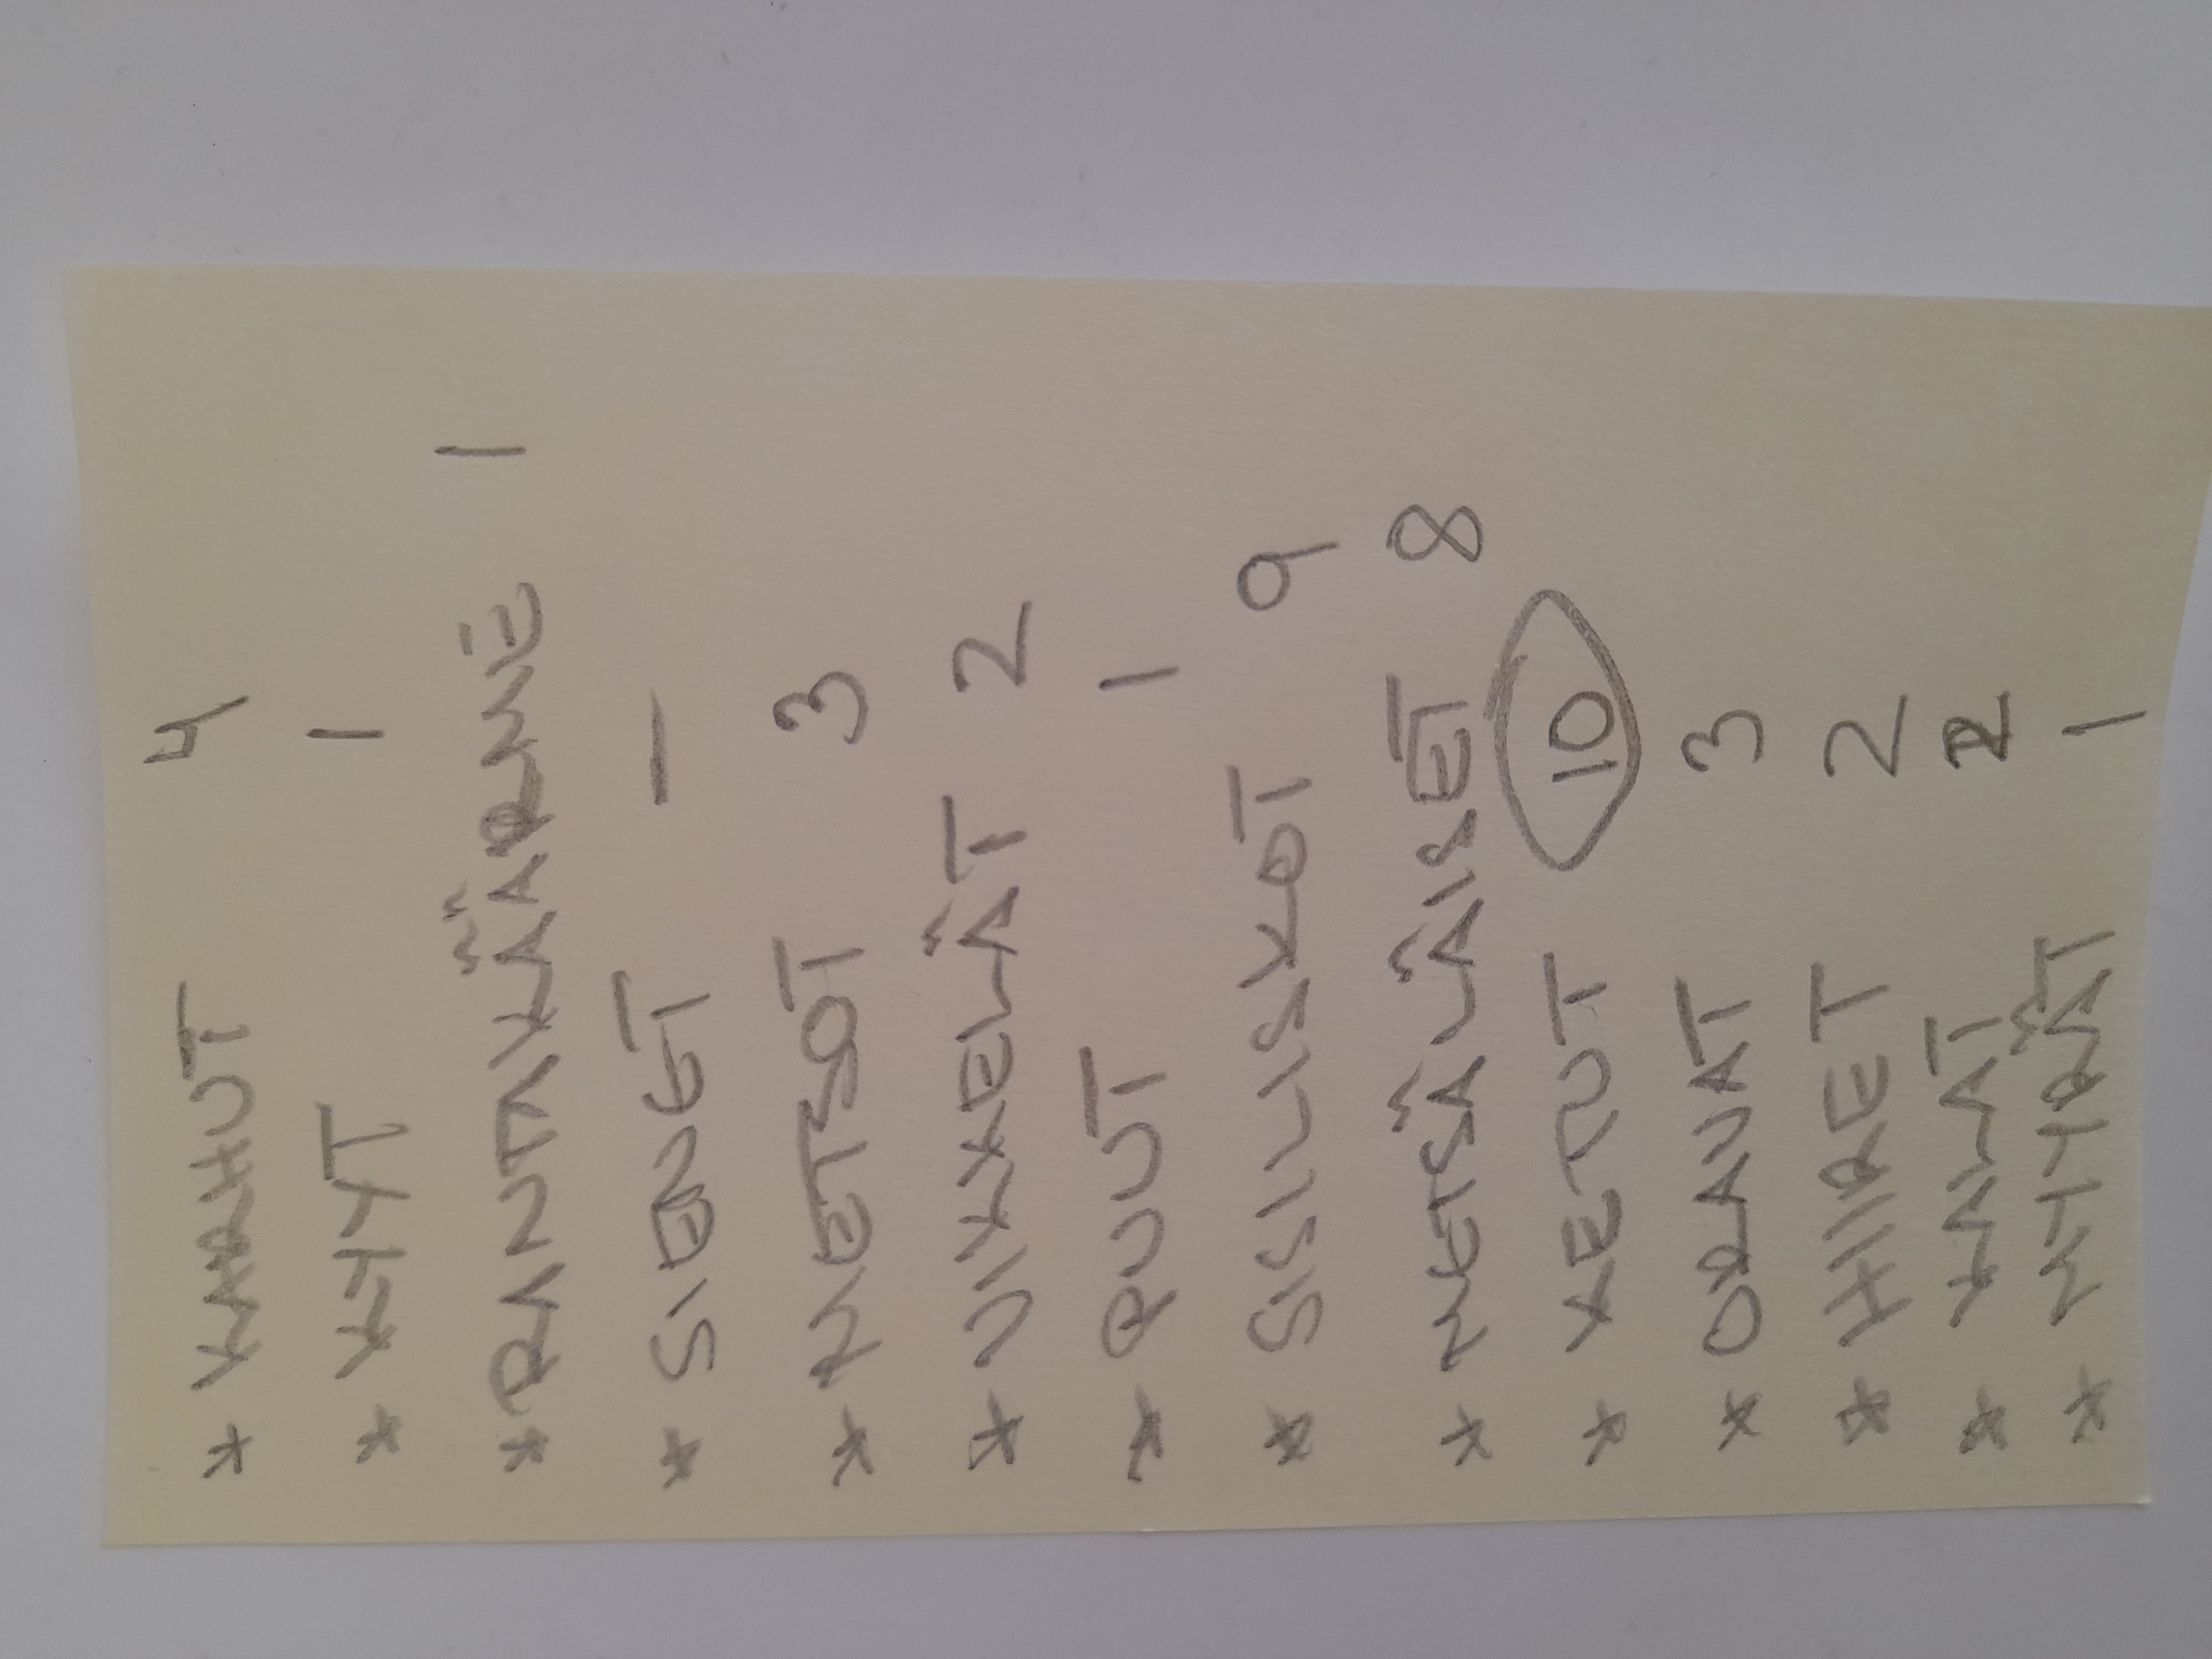 * KARHUT 4
* KYYT 1
* RANTAKÄÄRME 1
* SIENET —
* METSOT 3
* VIKKELÄT 2
* PUUT 1
* SISILISKOT 9
* METSÄLÄISET 8
* KETUT 10
* ORAVAT 3
* HIIRET 2
* KALAT 2
* MYYRÄT 1